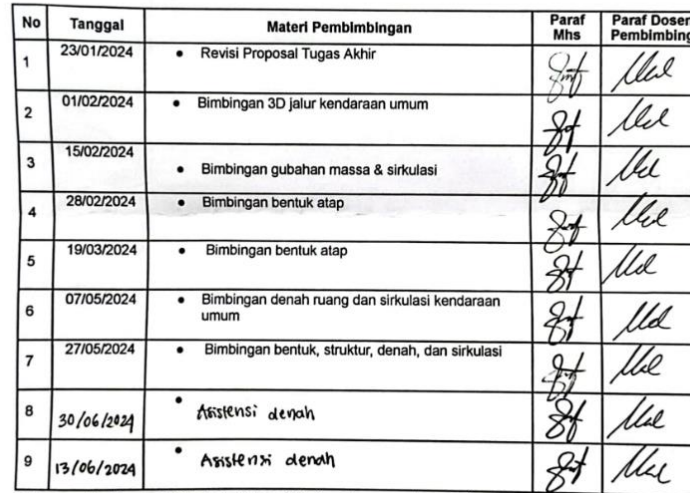 No Tanggal Materi Pembimbingan Paraf Mhs Paraf Dosen Pembimbing
1 23/01/2024 • Revisi Proposal Tugas Akhir
2 01/02/2024 • Bimbingan 3D jalur kendaraan umum
3 15/02/2024 • Bimbingan gubahan massa & sirkulasi
4 28/02/2024 • Bimbingan bentuk atap
5 19/03/2024 • Bimbingan bentuk atap
6 07/05/2024 • Bimbingan denah ruang dan sirkulasi kendaraan
umum
7 27/05/2024 • Bimbingan bentuk, struktur, denah, dan sirkulasi
8 30/06/2024 • Asistensi denah
9 13/06/2024 • Asistensi denah